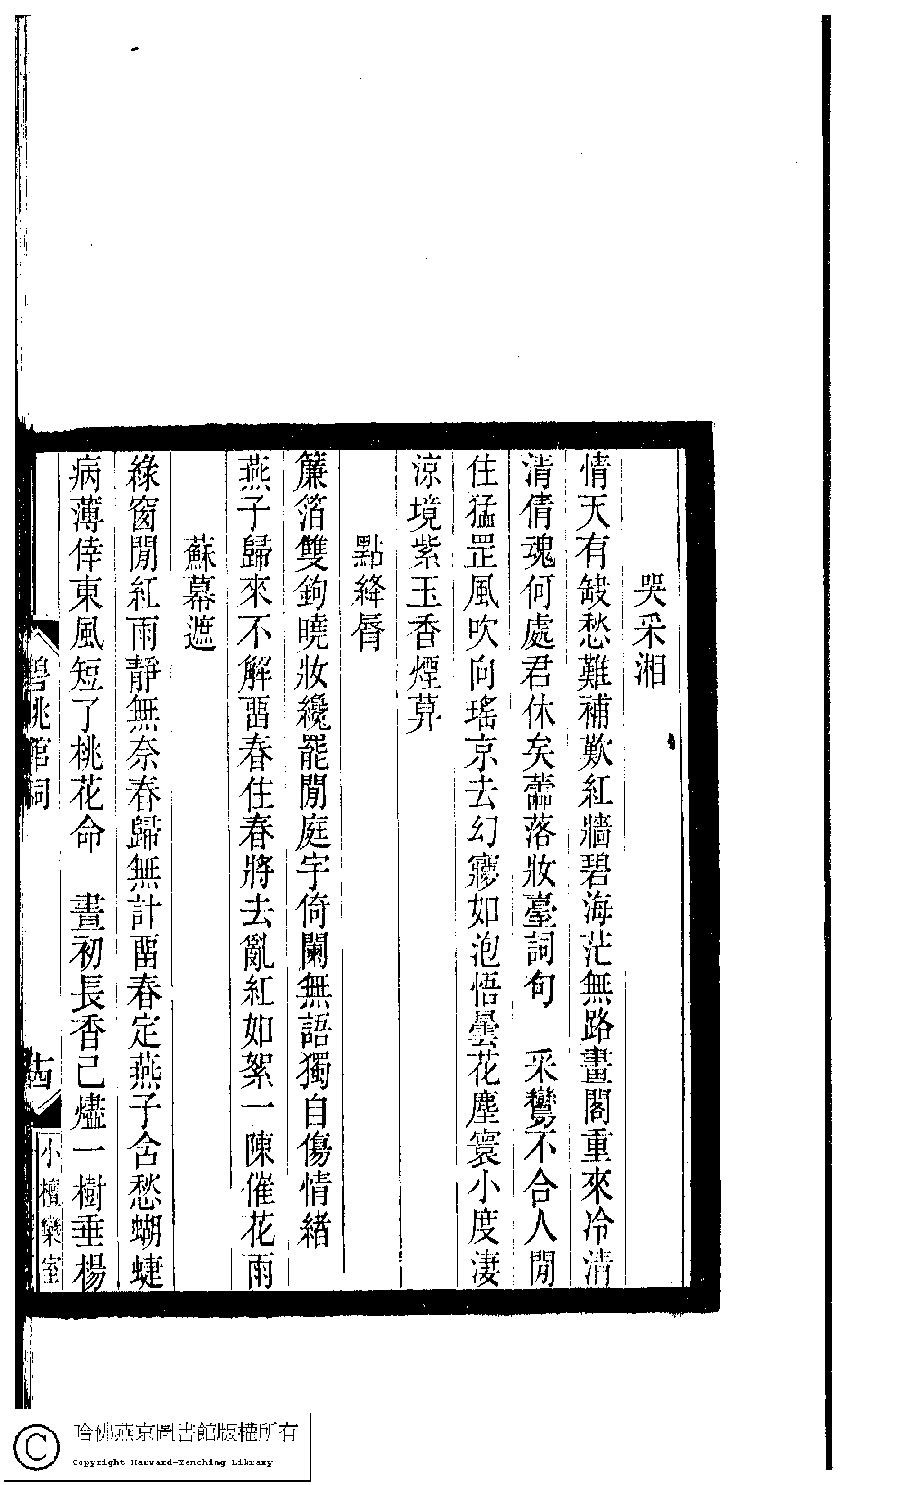 哭采湘
情天有缺愁難補歎紅牆碧海茫無路畫閣重來冷清
清倩魂何處君休矣蘦落妝臺詞句　采鸞不合人閒
住猛罡風吹向瑤京去幻寱如泡悟曇花塵寰小度淒
涼境紫玉香煙葬
點絳脣
簾箔雙鉤曉妝纔罷閒庭宇倚闌無語獨自傷情緒
燕子歸來不解畱春住春將去亂紅如絮一陳催花雨
蘇幕遮
綠窗閒紅雨靜無奈春歸無計畱春定燕子含愁蝴蜨
病薄倖東風短了桃花命　晝初長香已燼一樹垂楊
碧桃館詞
十四
小檀欒室
哈佛燕京圖書館版權所有
Copyright Harvard-Yenching Library